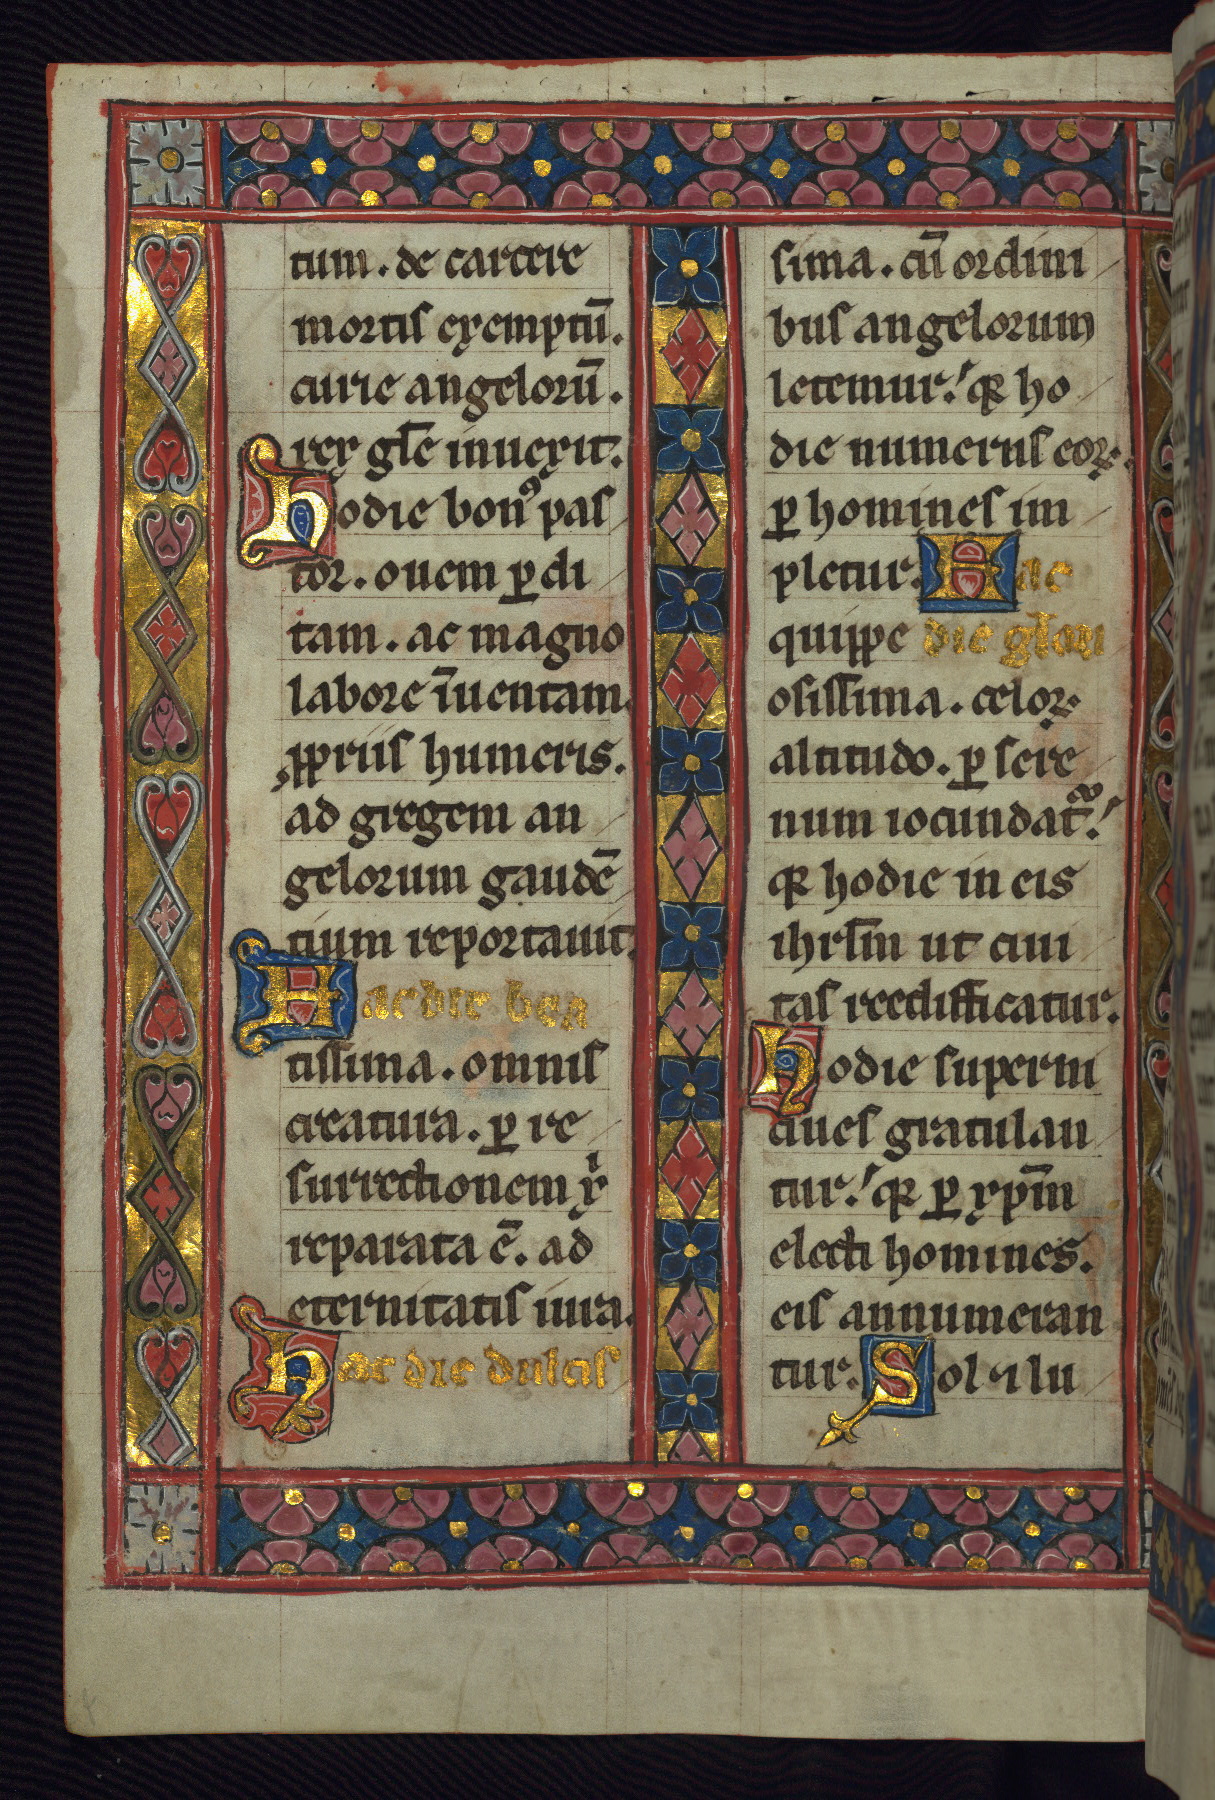 tum. de carcere
mortis exemptū.
curie angelorū.
rex gl̄e inuexit.
Hodie bonꝰ pas
tor. ouem ꝑdi
tam. ac magno
labore īuentam.
ꝓpriis humeris.
ad gregem an
gelorum gaudē
tium reportauit.
Hac die bea
tissima. omnis
creatura. ꝑ re
surrectionem xͥ
reparata ē. ad
eternitatis iura.
Hac die dulcis
sima. cū ordini
bus angelorum
letemur. qꝛ ho
die numerus eoꝝ.
ꝑ homines im
pletur. Hac
quippe die gl̄ori
osissima. celoꝝ
altitudo. ꝑ sere
num iocundat᷑.
qꝛ hodie in eis
ihrl̄m ut ciui
tas reedifficatur.
Hodie superni
ciues gratulan
tur. qꝛ ꝑ xp̄m
electi homines.
eis annumeran
tur. Sol ⁊ lu